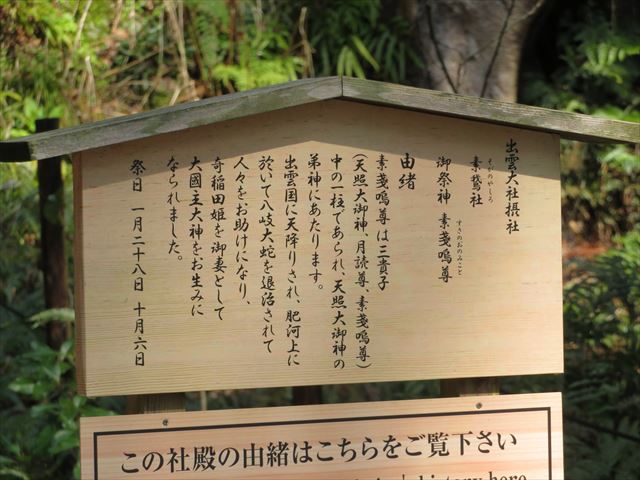 出雲大社摂社
そがのやしろ
素鵞社
すさのおのみこと
御祭神 素戔嗚尊
由緒
素戔嗚尊は三貴子
(天照大御神、月読尊、素戔嗚尊)
中の一柱であられ、天照大御神の
弟神にあたります。
出雲国に天降りされ、肥河上に
於いて八岐大蛇を退治されて
人々をお助けになり、
奇稲田姫を御妻として
大國主大神をお生みに
なられました。
祭日 一月二十八日 十月六日
この社殿の由緒はこちらをご覧下さい
history here